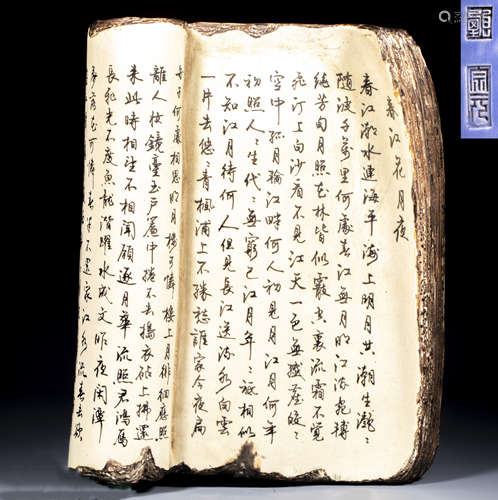 春江花月夜
春江潮水連海平海上明月共潮生灧々
隨波千萬里何處春江每月明江流宛轉
繞芳甸月照花林皆似霰空裏流霜不覺
飛汀上白沙看不見江天一色無纖塵皎々
空中孤月輪江畔何人初見月江月何年
初照人々生代々無窮已江月年々祗相似
不知江月待何人但見長江送流水白雲
一片去悠々青楓浦上不勝愁誰家今夜扁
舟子何處相思明月樓可憐樓上月徘徊應照
離人妝鏡臺玉戶簾中捲不去搗衣砧上拂還
來此時相望不相聞願逐月華流照君鴻雁
長飛光不度魚龍潛躍水成文昨夜閑潭
夢落花可憐春半不還家江水流春去欲